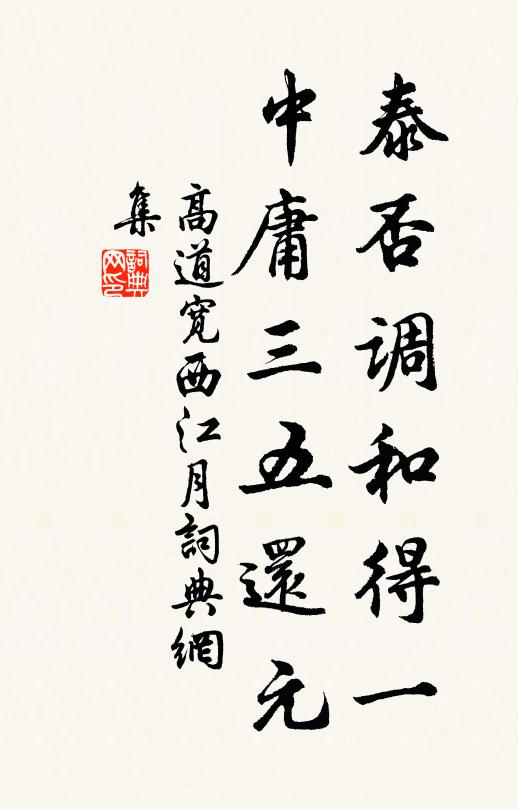 泰否調和得一
中庸三五還元
高道寬西江月詞典網
集
詞典
网印